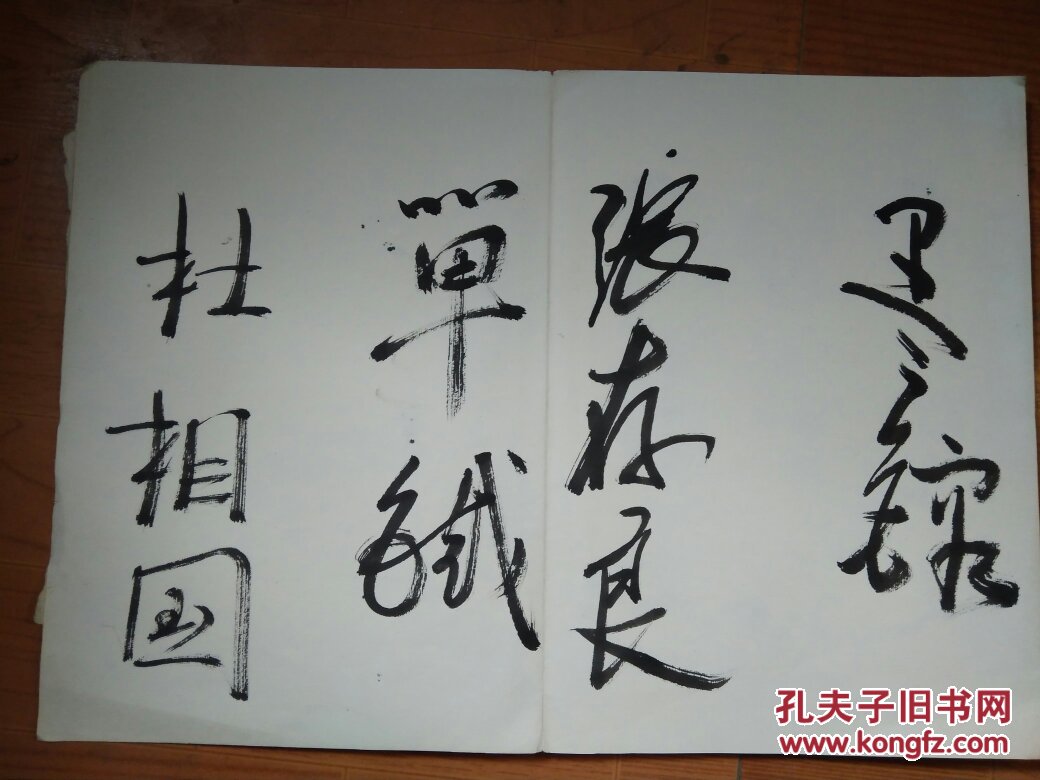 张存良
單鐵
杜相国
孔夫子旧书网
www.kongfz.com